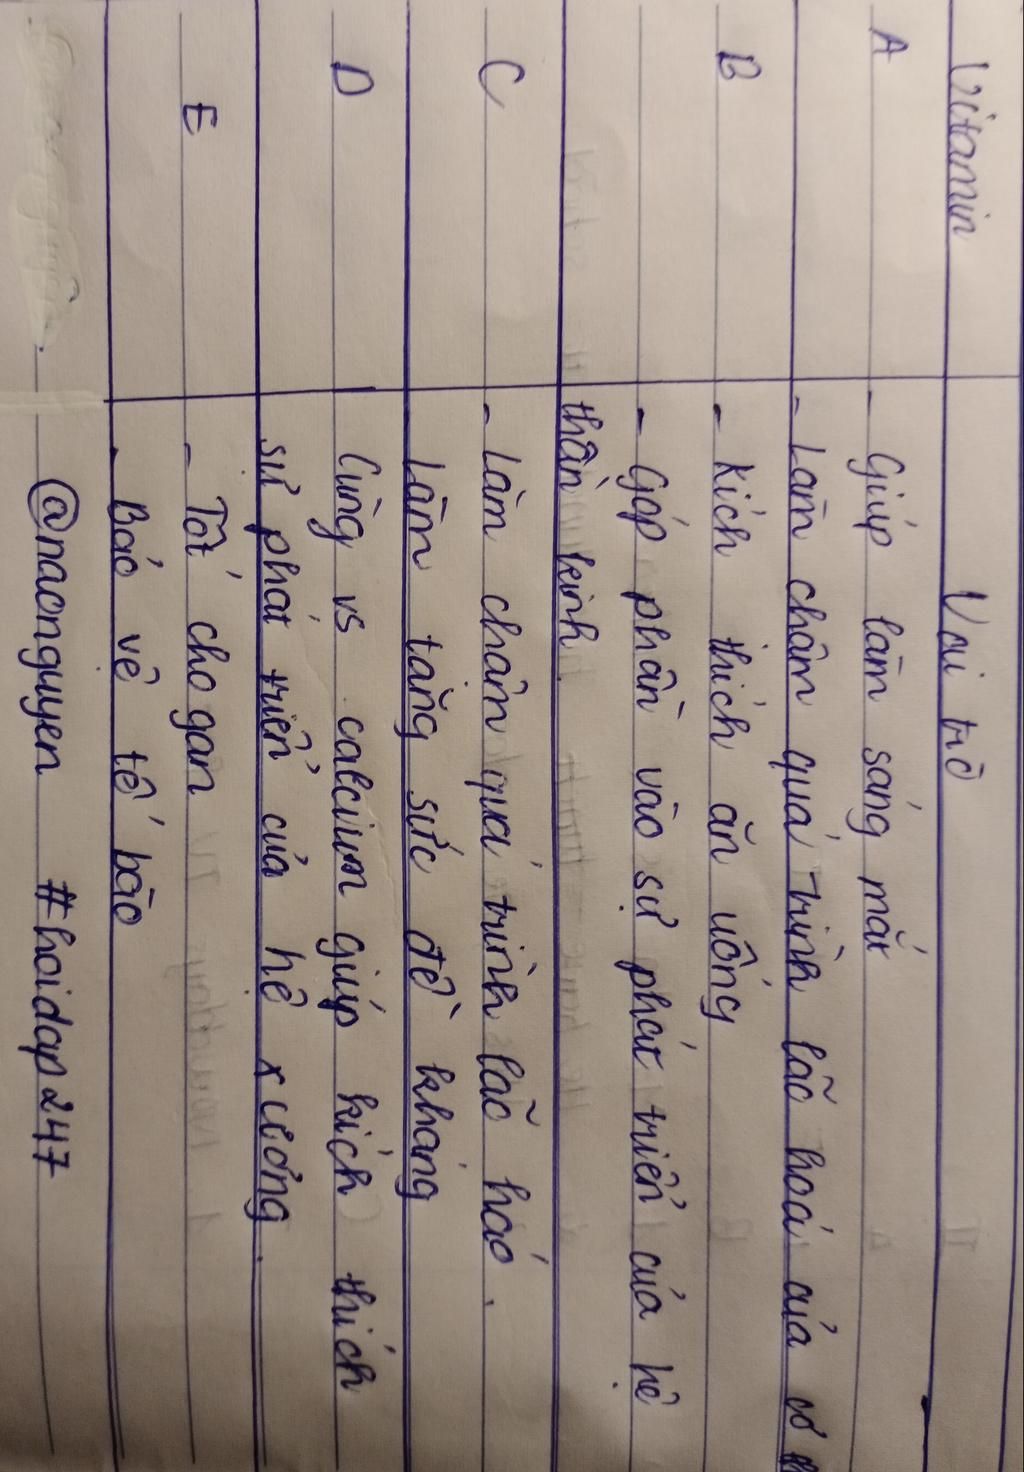 Vitamin Vai trò
A - Giúp làm sáng mắt
- Làm chậm quá trình lão hoá của cơ
B - Kích thích ăn uống
- Góp phần vào sự phát triển của hệ
thần kinh
C - Làm chậm quá trình lão hoá.
Làm tăng sức đề kháng
D Cùng vs calcium giúp kích thích
sự phát triển của hệ xương.
E - Tốt cho gan
- Bảo vệ tế bào
@naonguyen #hoidap247